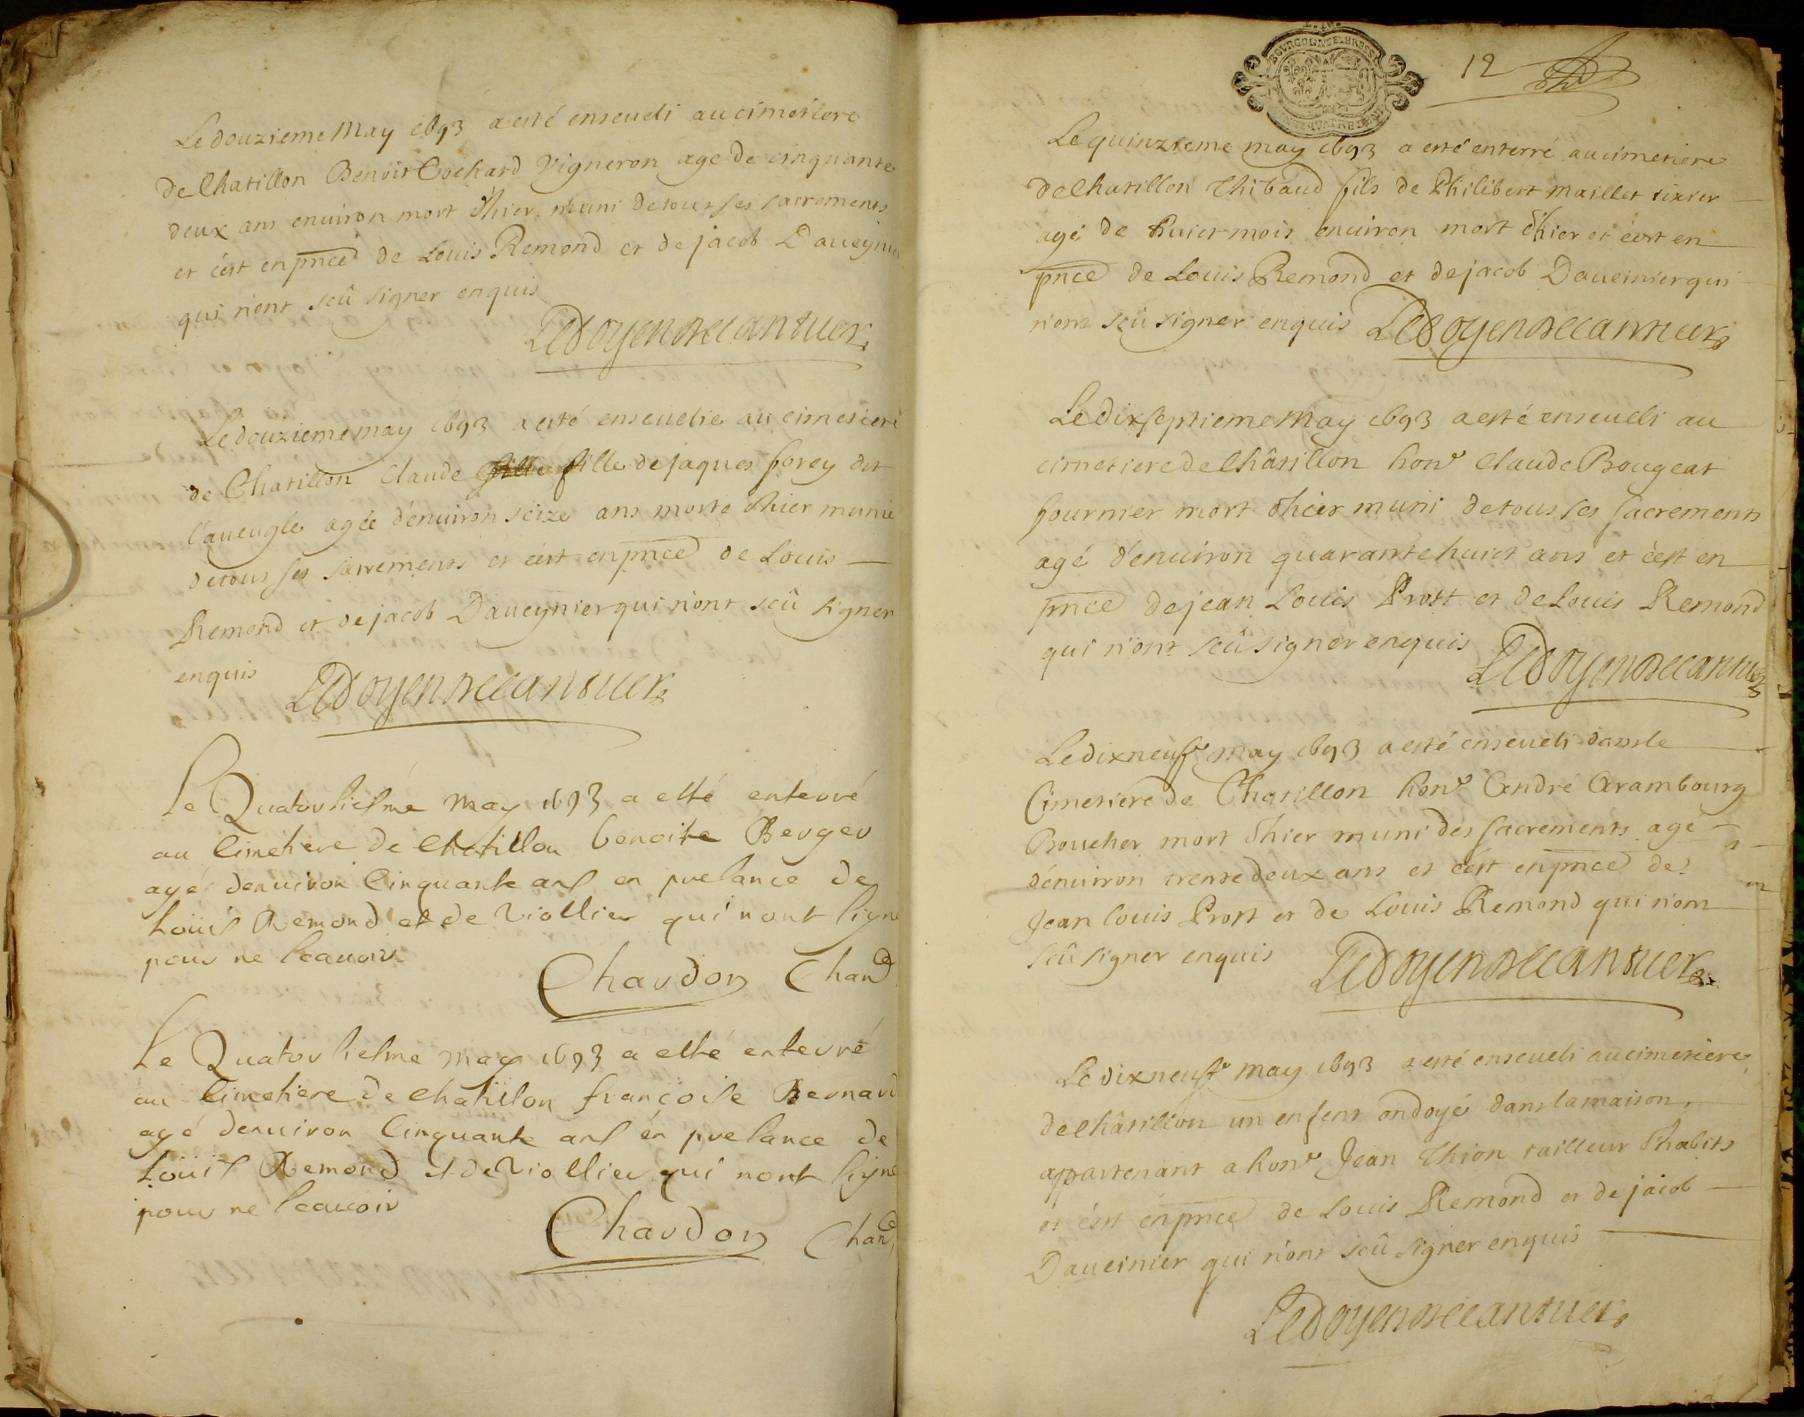 Le douzieme May 1693 a esté enseueli au cimetiere
de Chatillon Benoit Cochard Vigneron age de cinquante
deux ans enuiron mort d'hier muni de tous ses sacrements
et c'est en pnce de Louis Remond et de jacob Daueynier
qui n'ont sceû signer enquis
Le doyen
Le douzieme may 1693 a esté enseuelie au cimetiere
de Chatillon Claude fille de jaques forey dit
l'aueugle agée d'enuiron seize ans morte d'hier munie
de tous ses sacrements et c'est en pnce de Louis
Remond et de jacob Daueynier qui n'ont sceû signer
enquis
Le doyen
Le Quatorsiesme may 1693 a esté enterré
au Cimetiere de Chatillon benoite Berger
agé denuiron Cinquante ans en presance de
Louis Remond et de Viollier qui nont signe
pour ne scauoir
Chardon Chan
Le Quatorsiesme may 1693 a esté enterré
au Cimetiere de Chatillon françoise Bernard
agé denuiron Cinquante ans en presance de
Louis Remond et de Viollier qui nont signe
pour ne scauoir
Chardon Chan
12
Le quinzieme may 1693 a esté enterré au cimetiere
de Chatillon Thibaud fils de Philibert maillet tixier
agé de huict mois enuiron mort d'hier et c'est en
pnce de Louis Remond et de jacob Daueinier qui
n'ont sceû signer enquis Le doyen
Le dix septieme May 1693 a esté enseueli au
cimetiere de Châtillon hon.e Claude Bougeat
fournier mort d'hier muni de tous ses sacrements
agé d'enuiron quarante huict ans et c'est en
pnce de jean Louis Prost et de Louis Remond
qui n'ont sceû signer enquis
Le doyen
Le dixneufe may 1693 a esté enseueli dans le
Cimetiere de Chatillon hon.e André Arambourg
Boucher mort d'hier muni des sacrements agé
d'enuiron trente deux ans et c'est en pnce de
Jean louis Prost et de Louis Remond qui n'ont
sceû signer enquis Le doyen
Le dixneufe may 1693 a esté enseueli au cimetiere
de Châtillon un enfent ondoyé dans la maison
appartenant a hon.e Jean Thion tailleur d'habits
et c'est en pnce de Louis Remond et de jacob
Daueinier qui n'ont sceû signer enquis
Le doyen